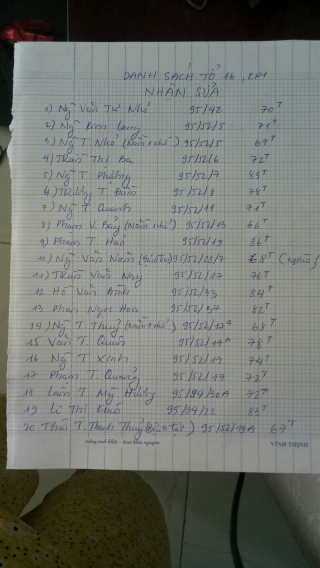 DANH SÁCH TỔ 16, KP1
NHẬN SỮA
1) Ngô Văn Tư Nhỏ 95/42 70T
2) Ngô Kim Lang 95/52/5 71T
3) Ngô T. Nhỏ (Nằm 1 chỗ) 95/52/5 67T
4) Trần Thị Ba 95/52/6 72T
5) Ngô T. Phường 95/52/7 85T
6) Trương T. Đầm 95/52/8 78T
7) Ngô T. Quanh 95/52/11 74T
8) Phạm V. Bảy (Nằm 1 chỗ) 95/52/13 66T
9) Phạm T. Hảo 95/52/19 86T
10) Ngô Văn Năm 95/52/23/7 68T
11) Trần Văn Nay 95/52/27 76T
12 Hồ Văn Bình 95/52/33 84T
13 Phan Ngọc Hoa 95/52/37 82T
14) Ngô T. Thuỷ (Nằm 1 chỗ) 95/52/17A 68T
15 Văn T. Quân 95/52/17A 78T
16 Ngô T. Xinh 95/52/19 74T
17 Phạm T. Quang 95/52/17 72T
18 Lâm T. Mỹ Hường 95/24/30A 72T
19 Lê Thị Khỏ 95/94/22 83T
20 Thái T. Thanh Thuỷ 95/52/19A 67T
VĨNH THỊNH